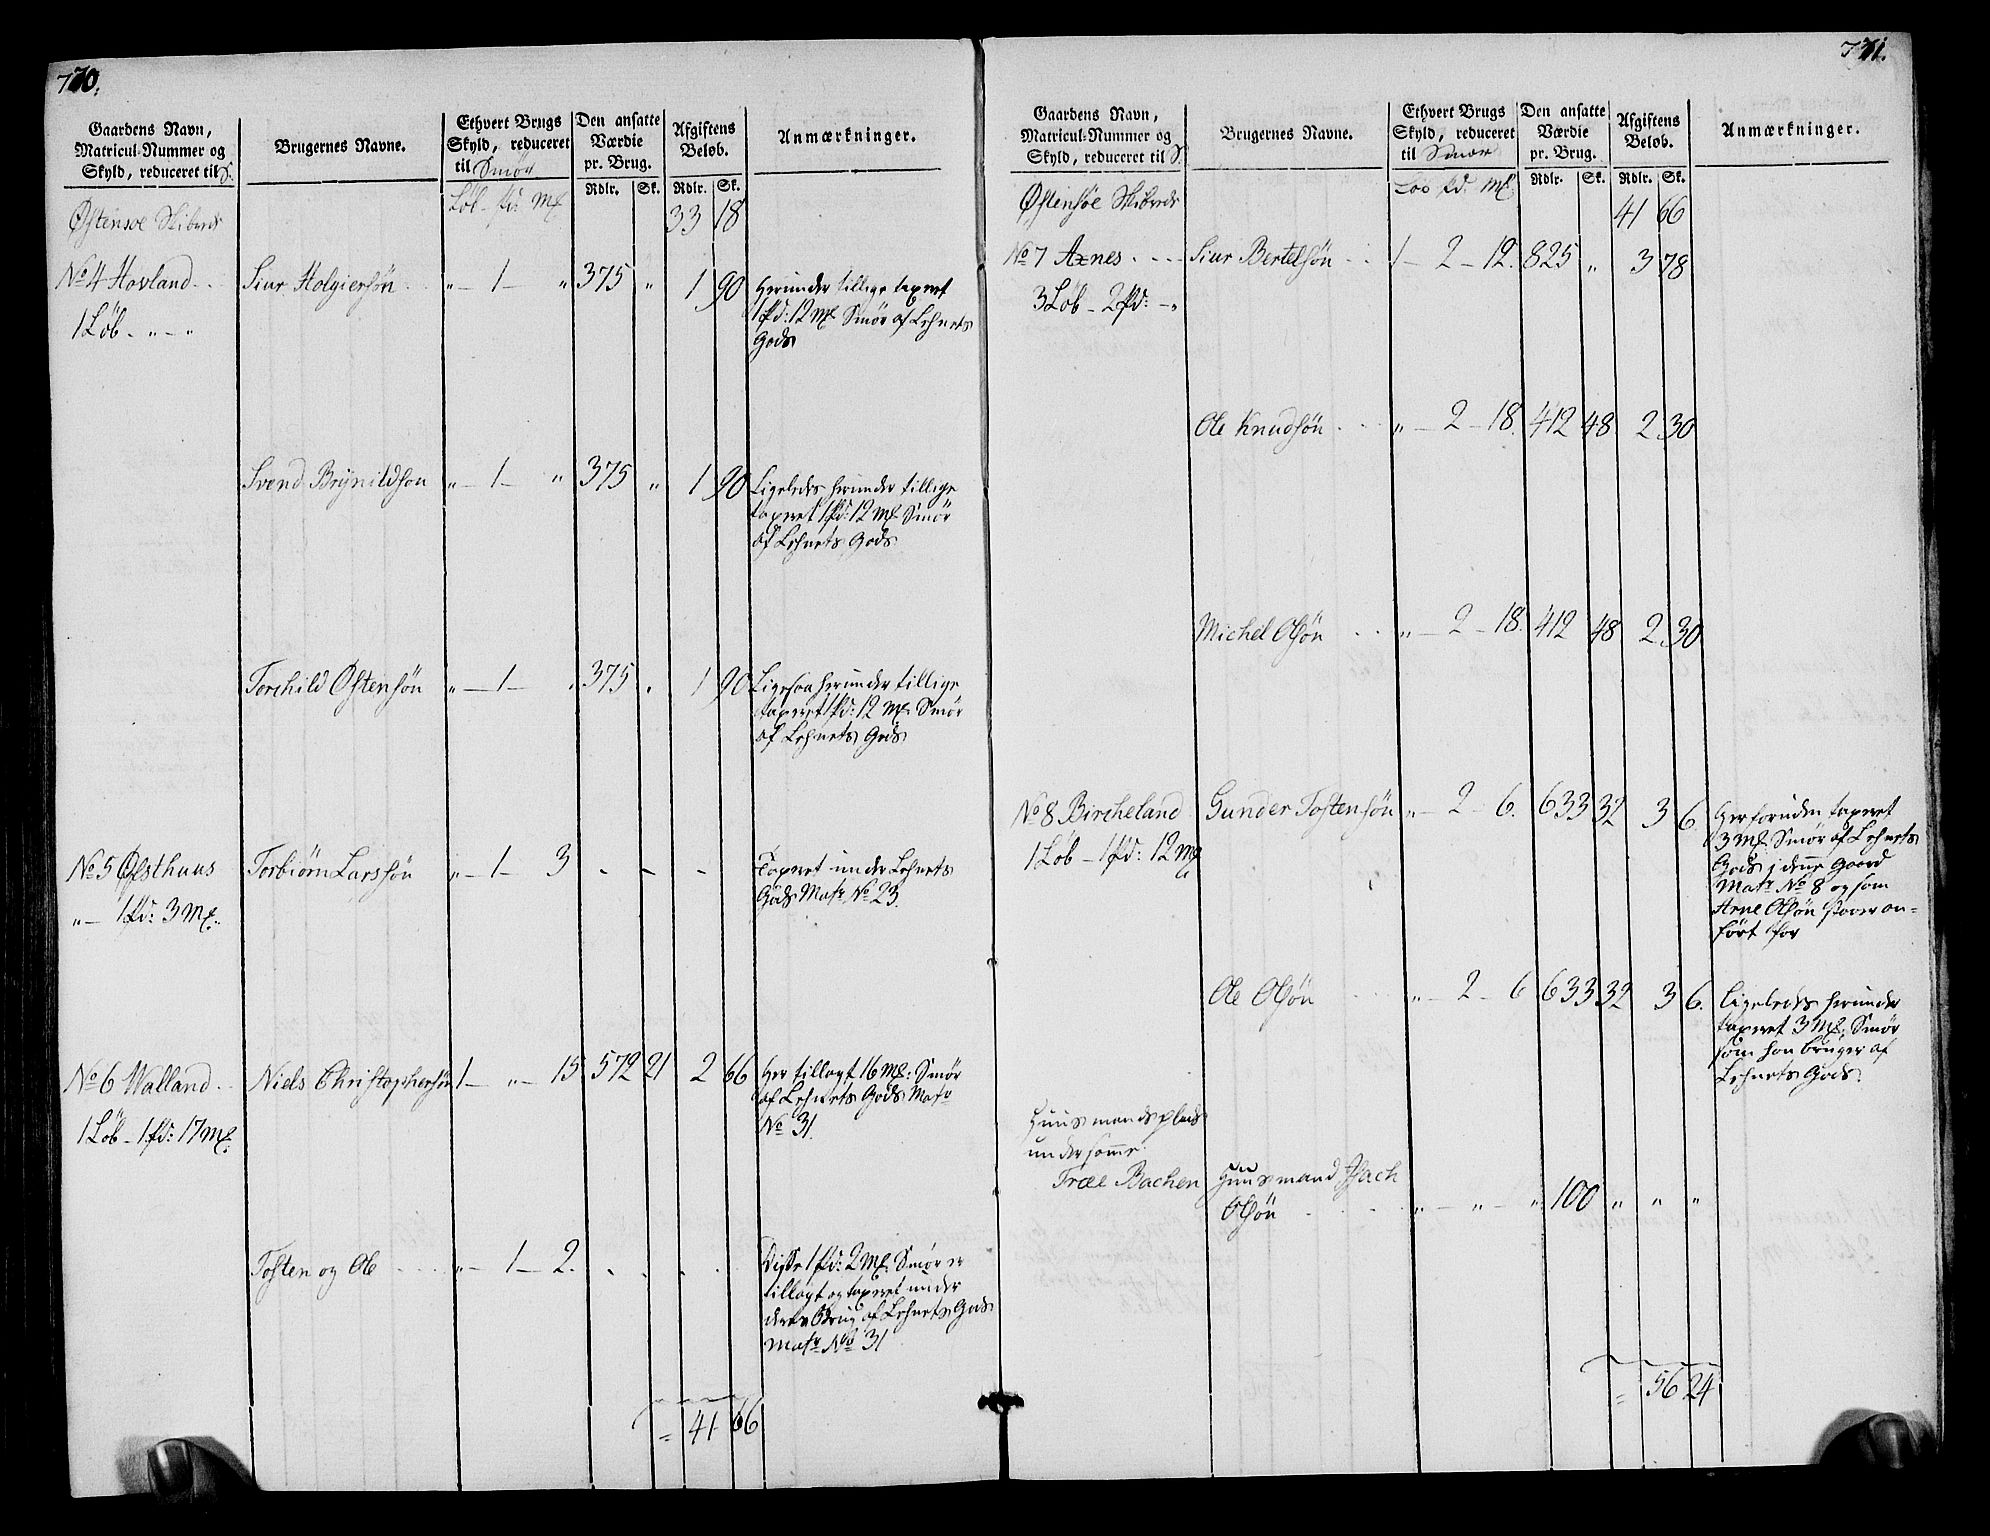 770.
Gaardens Navn,
Matricul-Nummer og
Skyld, reduceret til S.
Brugernes Navne.
Ethvert Brugs
Skyld, reduceret
til Smør
Den ansatte
Værdie
pr. Brug.
Afgiftens
Beløb.
Anmærkninger.
Rdlr. Sk. Rdlr. Sk.
Østensøe Skibrede Løb - pd: Mk 33 18
No 4 Hovland Siur Holgiersøn „ - 1 - „ 375 „ 1 90 Herunder tillige taxeret
1 Løb - „ - „ 1 pd: 12 Mk Smør af Lehnets
Gods
Svend Brynildsøn „ - 1 - „ 375 „ 1 90 Ligeledes herunder tillige
taxeret 1 pd: 12 Mk Smør
af Lehnets Gods
Torchild Østensøn „ - 1 - „ 375 „ 1 90 Ligesaa herunder tillige
taxeret 1 pd: 12 Mk Smør
af Lehnets Gods
No 5 Øfsthuus Torbiørn Larssøn „ - 1 - 3 - - - Taxeret under Lehnets
„ - 1 pd: 3 Mk. Gods Matr No 23.
No 6 Walland Niels Christophersøn 1 - „ - 15 572 21 2 66 Her tillagt 16 Mk: Smør
af Lehnets Gods Matr
1 Løb - 1 pd: 17 Mk. No 31.
Tosten og Ole „ - 1 - 2. Disse 1 pd: 2 Mk. Smør er
tillagt og taxeret under
deres Brug af Lehnets Gods
Matr No 31
= 41 66
771.
Gaardens Navn,
Matricul-Nummer og
Skyld, reduceret til S.
Brugernes Navne.
Ethvert Brugs
Skyld, reduceret
til Smør
Den ansatte
Værdie
pr. Brug.
Afgiftens
Beløb.
Anmærkninger.
Rdlr. Sk. Rdlr. Sk.
Østensøe Skibrede Løb pd: Mk 41 66
No 7 Axnes Siur Bertelsøn 1 - 2 - 12. 825 „ 3 78
3 Løb - 2 pd: - „
Ole Knudsøn „ - 2 - 18. 412 48 2 30
Michel Olsøn „ - 2 - 18. 412 48 2 30
No 8 Bircheland Gunder Tostensøn „ - 2 - 6. 633 32 3 6 Herforuden taxeret
1 Løb - 1 pd: 12 Mk 3 Mk. Smør af Lehnets
Gods i denne Gaard
Matr No 8 og som
Arne Olsøn staaer an-
ført for
Ole Olsøn „ - 2 - 6 633 32 3 6. Ligeledes herunder
taxeret 3 Mk. Smør
som han bruger af
Lehnets Gods.
Huusmands plads
under samme
Træe Bachen Huusmand Isach
Olsøn „ - „ - „ 100 „ „ „
= 56 24